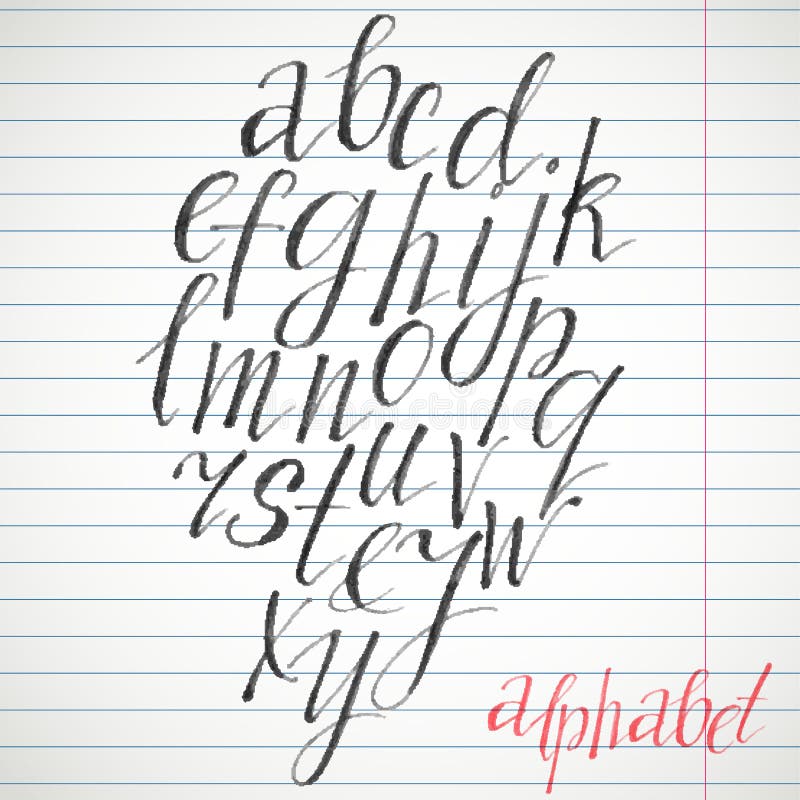 abcd.
efghijk
lmnopq
rstuv
eyw
xy
alphabet